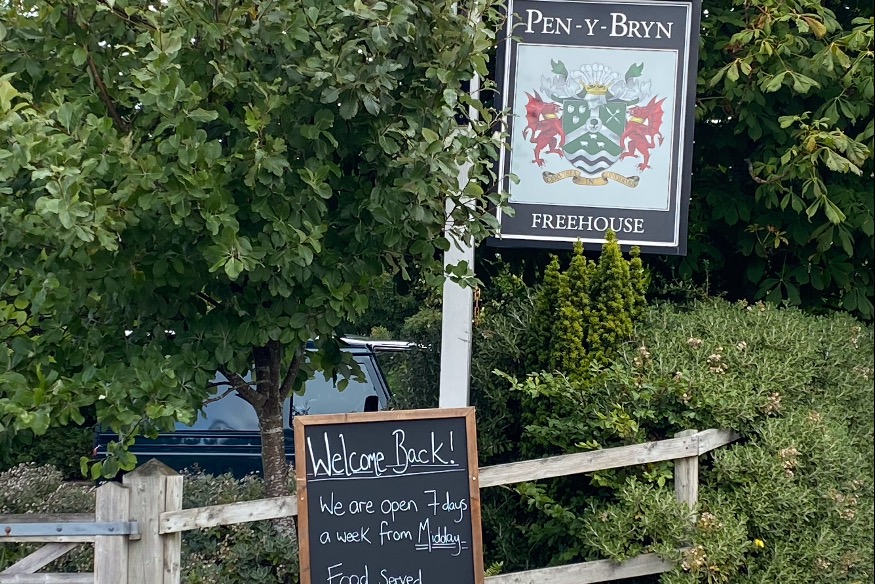 PEN-Y-BRYN
FREEHOUSE
Welcome Back!
We are open 7 days
a week from Midday
Food Served